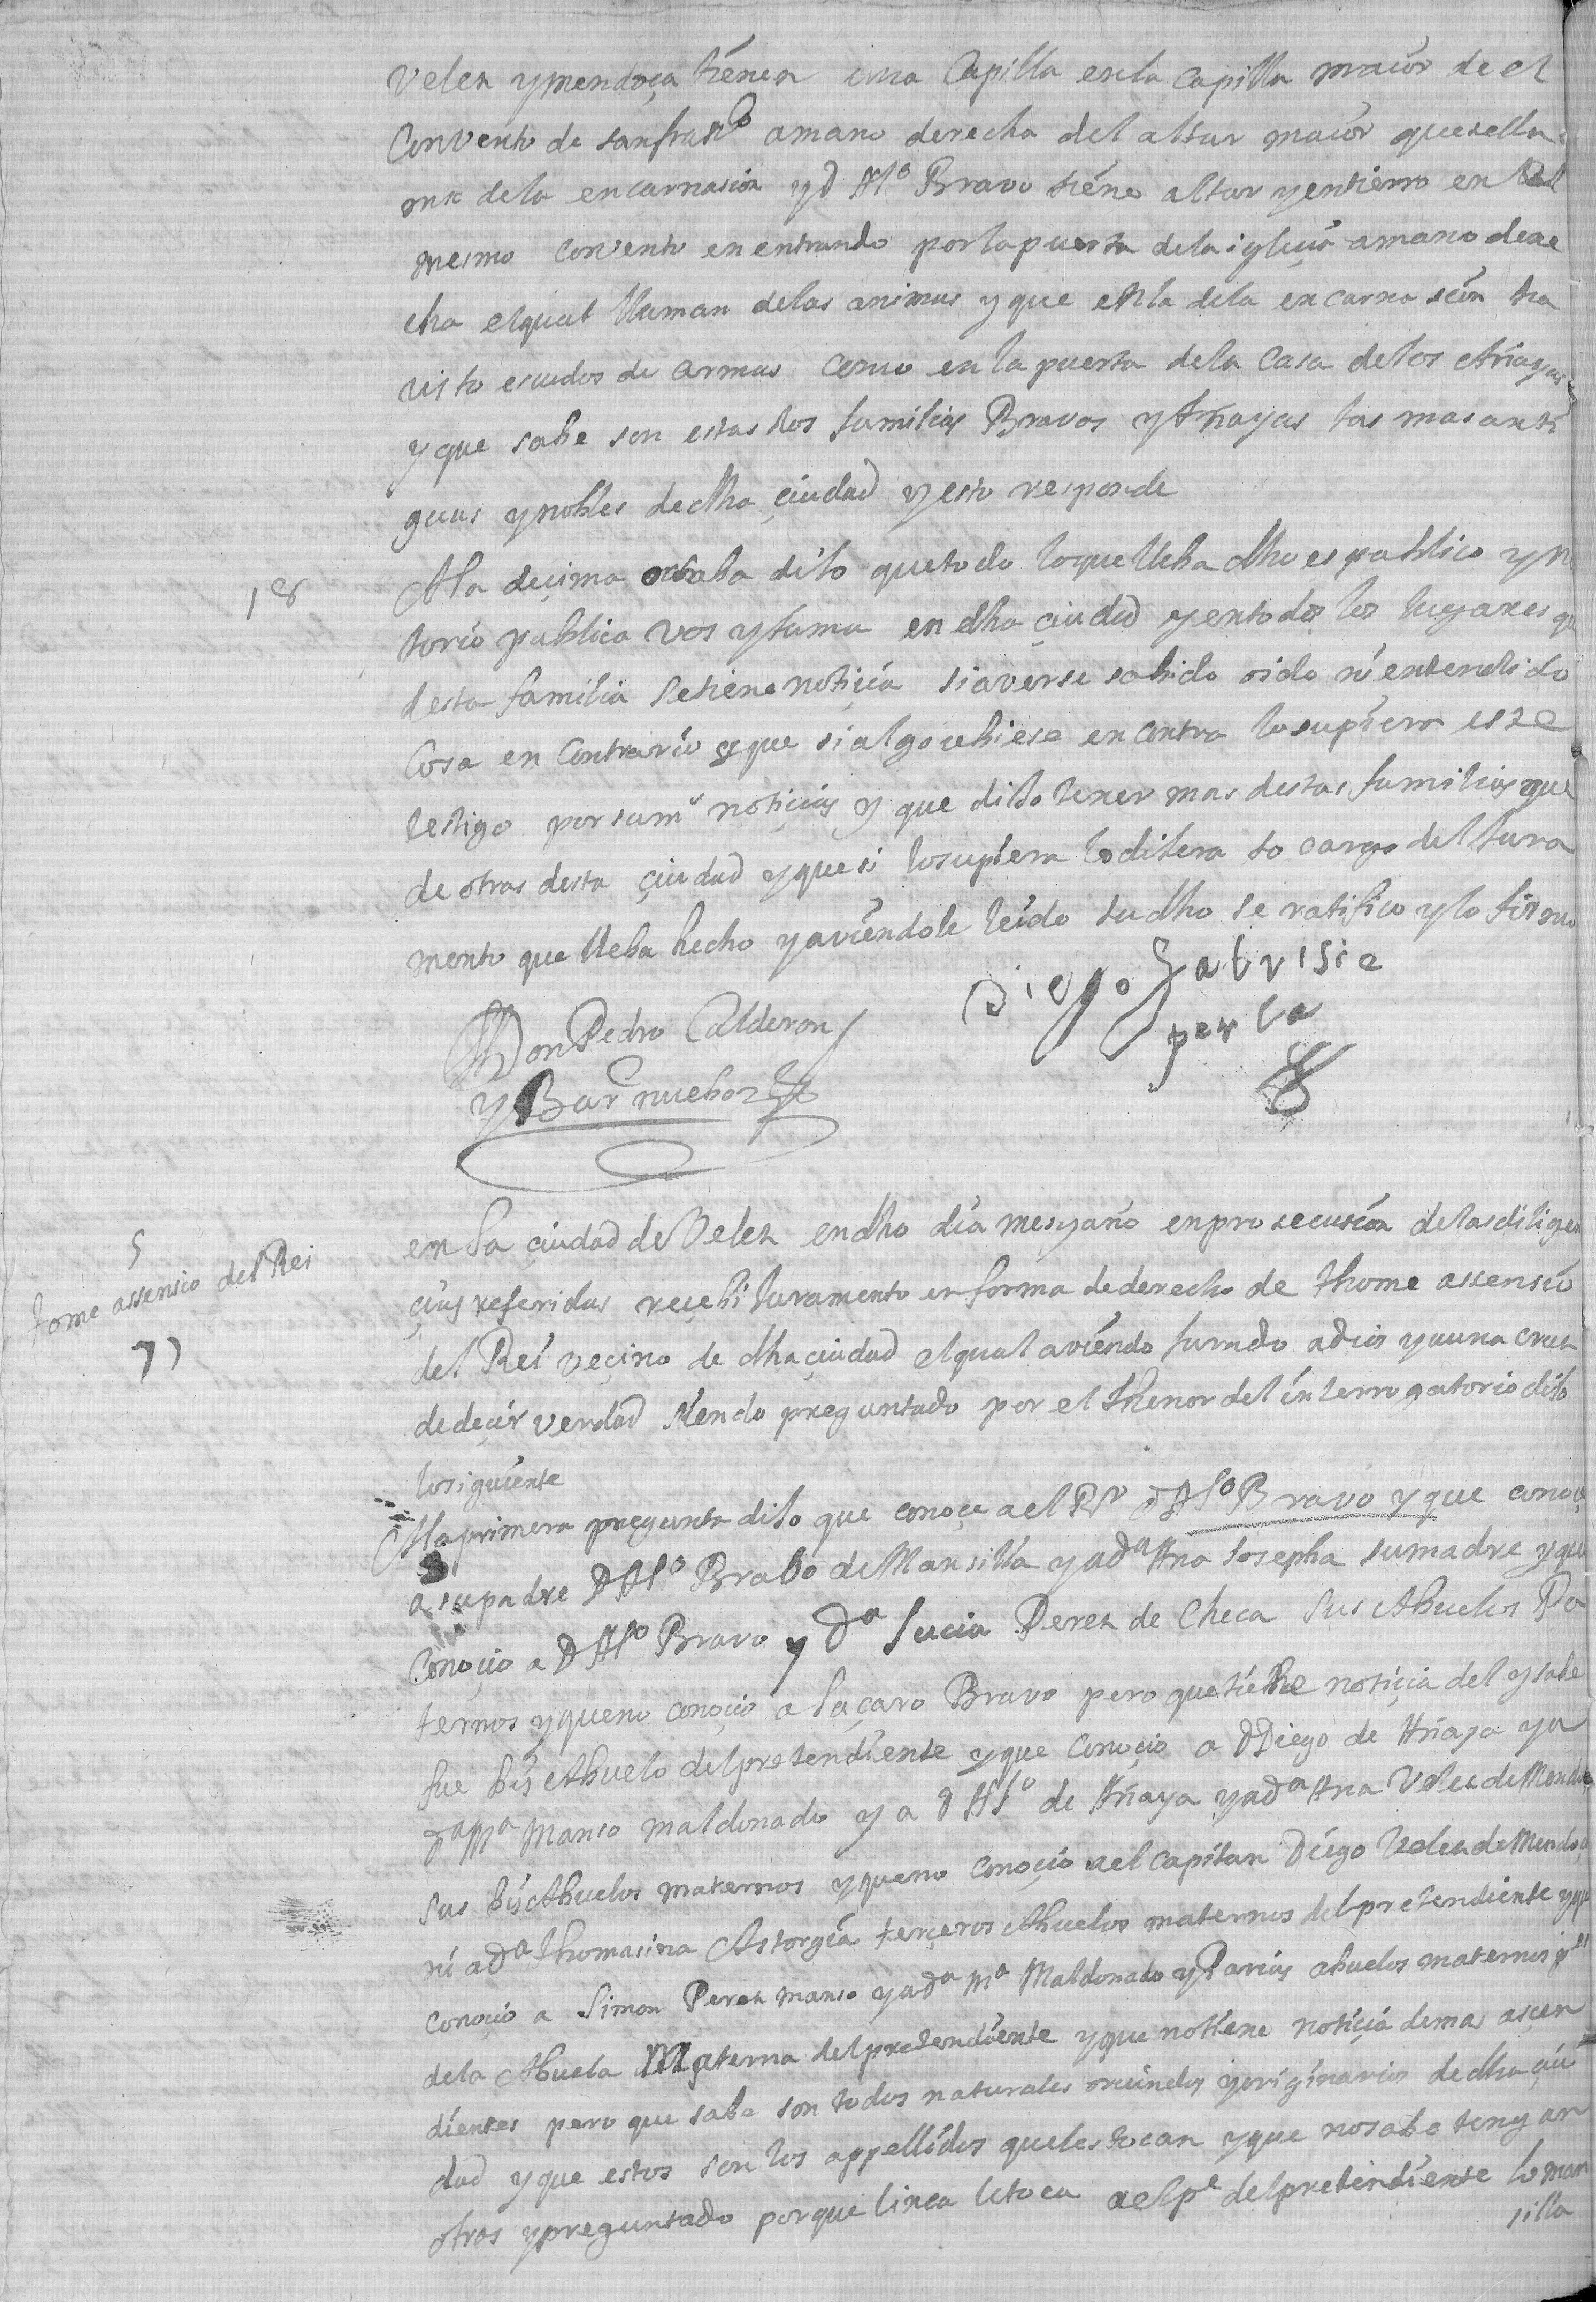 Velez y mendoça tienen una Capilla en la Capilla maior de el
Convento de san fran.co a mano derecha del altar maior que se lla
ma de la encarnasion y D Al.o Bravo tiene altar y entierro en el
mesmo convento en entrando por la puerta de la iglesia a mano dere
cha el qual llaman de las animas y que en la de la encarnascion ha
visto escudos de armas como en la puerta de la Casa de los Añayas
y que sabe son estas dos familias Bravos y Añayas las mas anti
guas y nobles de dha çiudad y esto responde
18 A la deçima octaba dijo que todo lo que lleba dho es publico y no
torio publica vos y fama en dha çiudad y en todos los lugares que
desta familia se tiene notiçia si averse sabido oido ni entendido
Cosa en Contrario y que si algo ubiese en contra lo supiera este
testigo por sus m.s notiçias y que dijo tener mas destas familias que
de otras desta çiudad y que si lo supiera lo dijera so cargo del jura
mento que lleba hecho y aviendole leido su dho se ratifico y lo firmo
Diego
per la
Don Pedro Calderon
y Barnuebo
5
tome assensio del Rei
71
en la çiudad de Velez en dho dia mes y año en prosecusion de las diligen
çias referidas reçebi Juramento en forma de derecho de thome assensio
del Rei veçino de dha çiudad el qual aviendo Jurado a dios y a una cruz
de deçir verdad siendo preguntado por el thenor del interrogatorio dijo
lo siguiente
A la primera pregunta dijo que conoçe a el P.o D Al.o Bravo y que conoçe
a su padre D Al.o Brabo de Mansilla y a d.a Ana Josepha su madre y que
Conoçio a D Al.o Bravo y D.a Lucia Perez de Checa sus Abuelos Pa
ternos y que no conoçio a Laçaro Bravo pero que tiene notiçia del y sabe
fue bis Abuelo del pretendiente y que Conoçio a D Diego de Añaya y a
D.a M.a Manso maldonado y a D Al.o de Añaya y a D.a Ana Velez de Mendoça
sus bis Abuelos maternos y que no conoçio a el capitan Diego Velez de Mendoça
ni a D.a thomasina Astorgia terçeros Abuelos maternos del pretendiente y que
conoçio a Simon Perez manso y a D.a M.a Maldonado y Parias abuelos maternos
de la Abuela Materna del pretendiente y que no tiene notiçia de mas asçen
dientes pero que sabe son todos naturales oriundos y originarios de dha çiu
dad y que estos son los appellidos que les tocan y que no sabe tengan
otros y preguntado por que linea le toca a el p.e del pretendiente lo man
silla